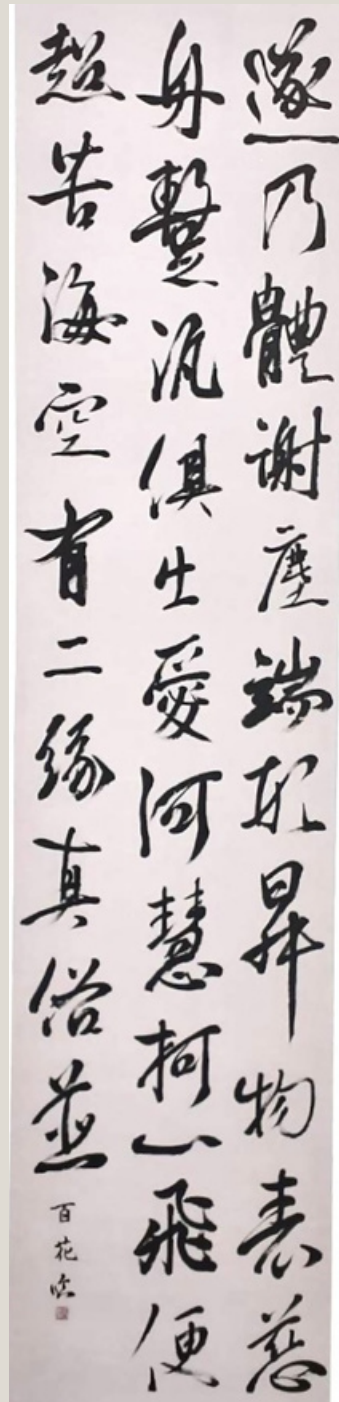 遂乃體謝塵端形昇物表慈
舟蹔汎俱出愛河慧柯一飛便
超苦海空有二緣真俗並
百花臨